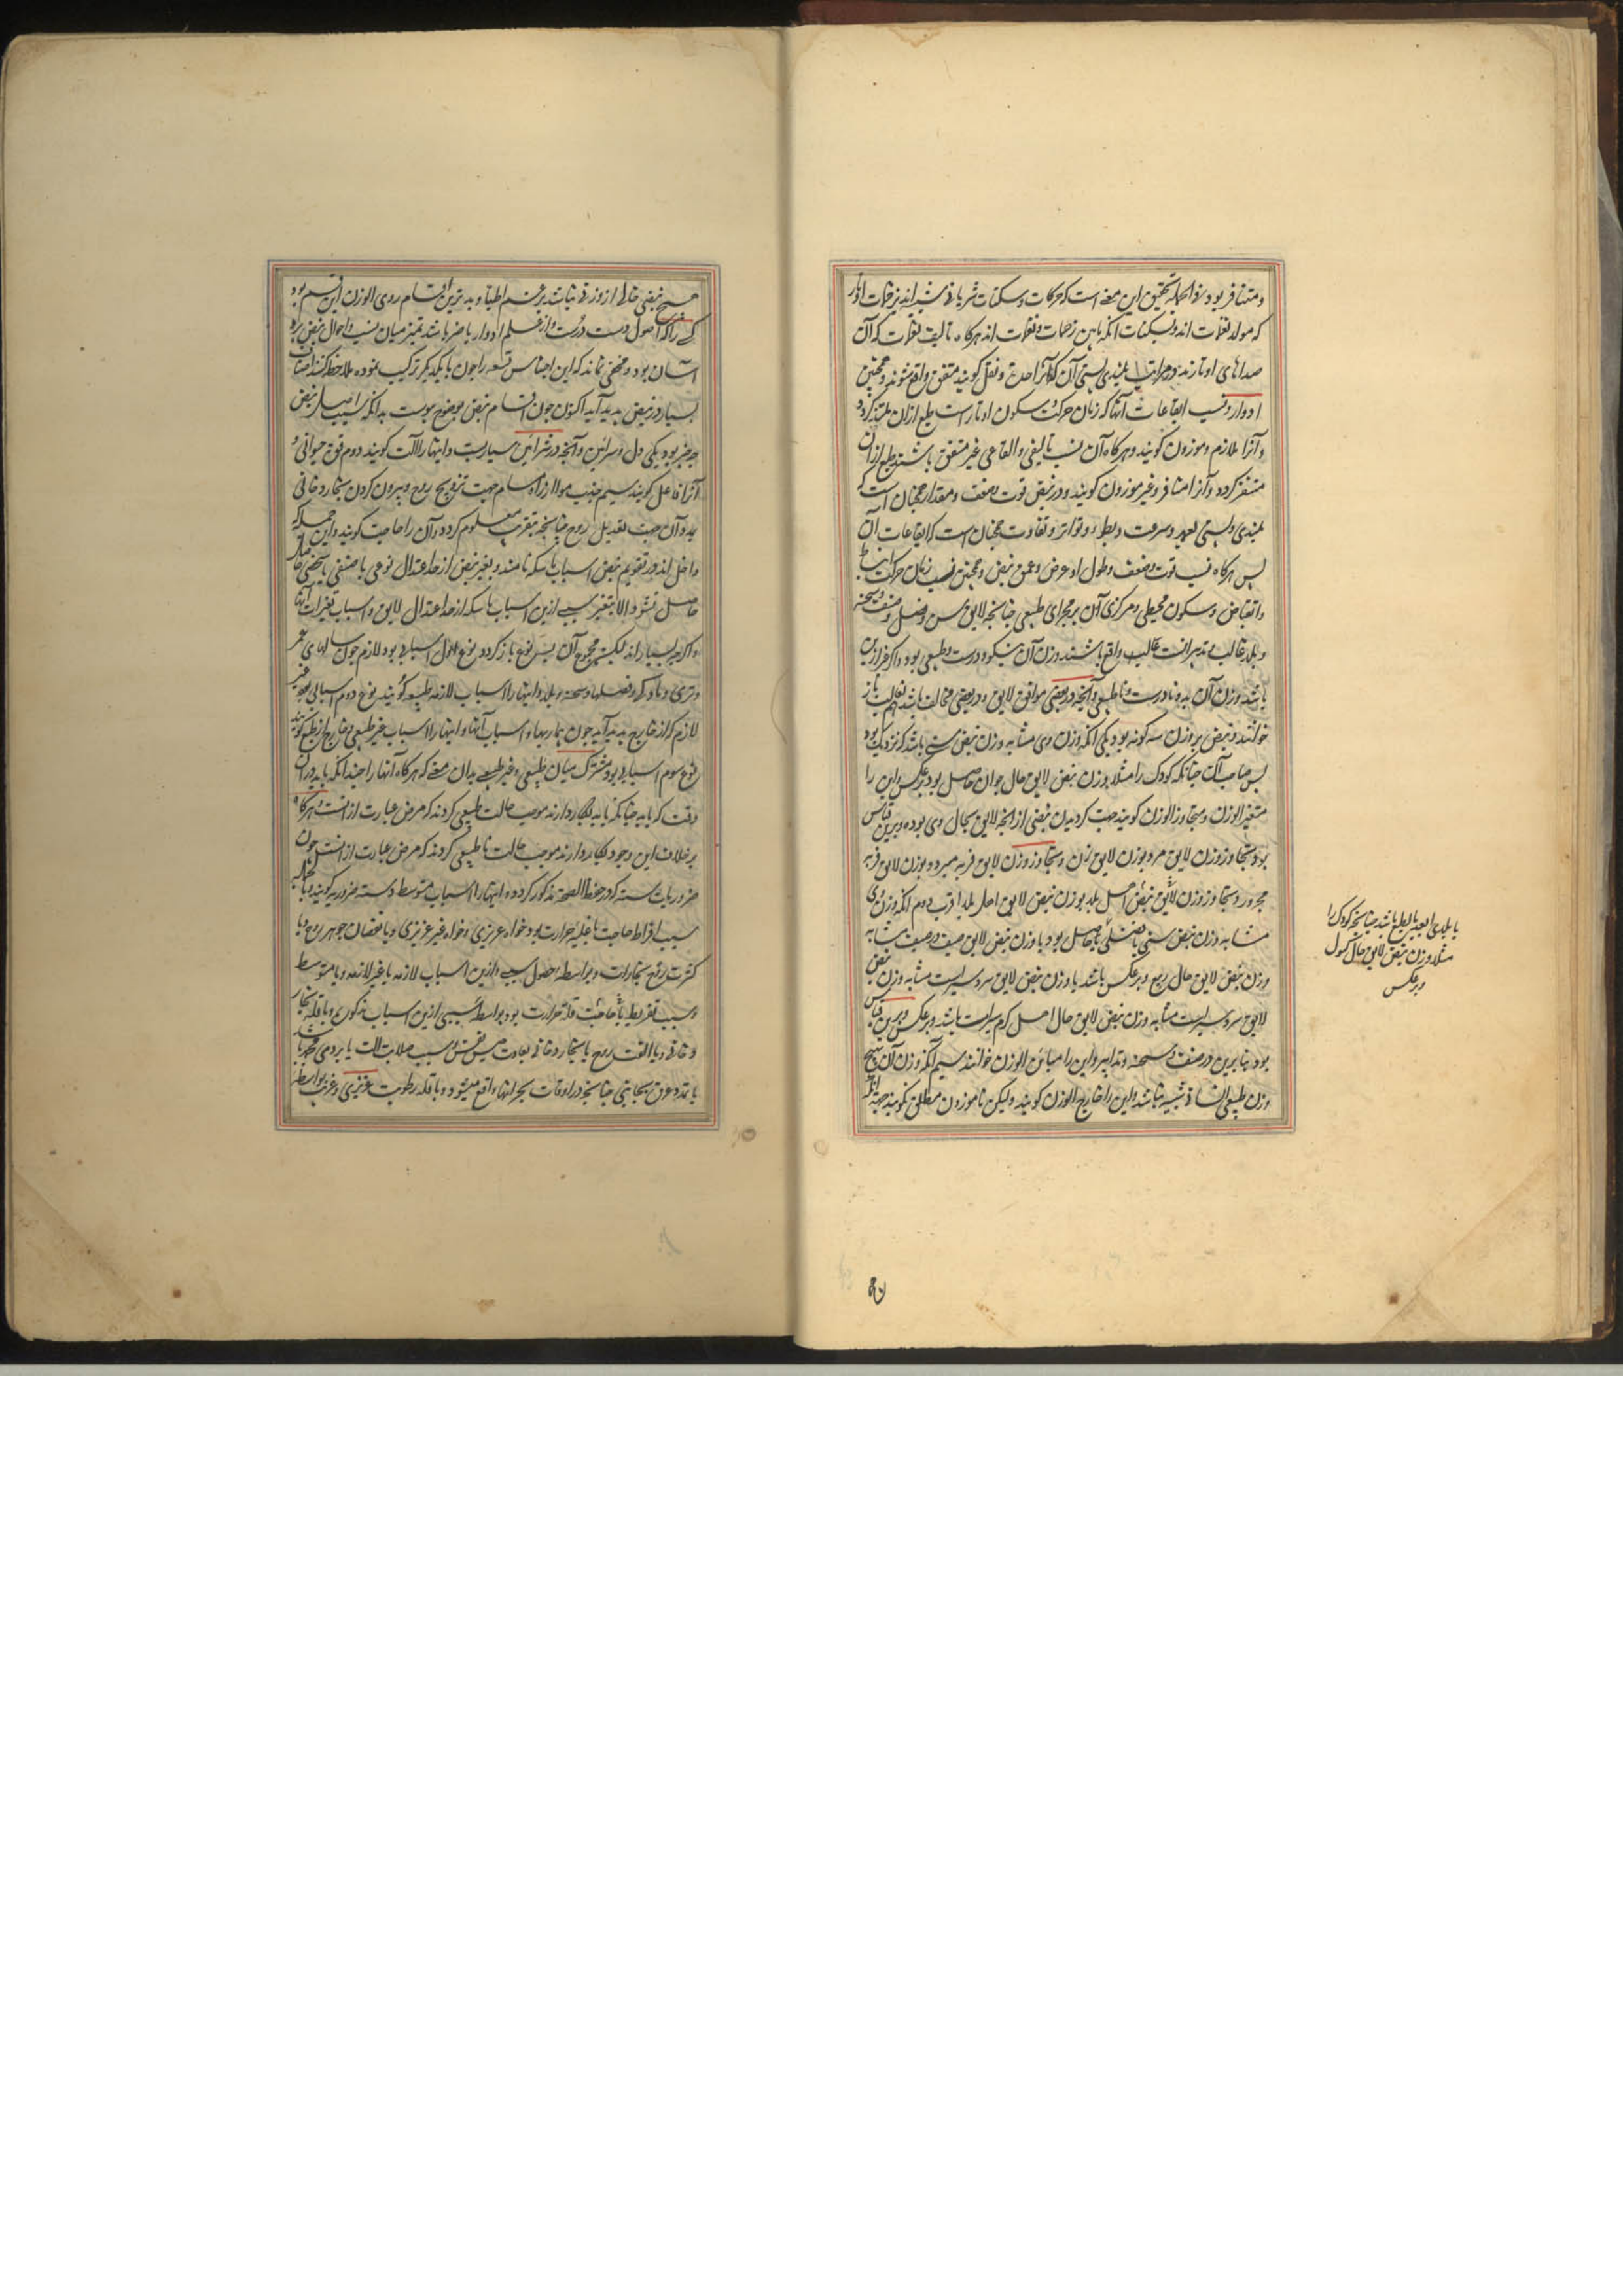 ومتنافر بود و فی الجمله تحقیق این معنی است که حرکات و سکنات شریانی شبیه اند بزخمات اوتار
که مولد نغمات اند و بسکنات آنکه مابین زخمات و نغمات اند هرکاه تالیف نغمات که آن
صداهای اوتارند در مراتب بلندی و پستی آن که آنرا حدت و ثقل کویند متفق واقع شوند و همچنین
ادوار و نسب ایقاعات آنها که زمان حرکت و سکون اوتار است طبع ازان ملتذ کردد
و آنرا ملازم و موزون کویند و هرکاه آن نسب تالیفی و ایقاعی غیر متفق باشند طبع ازان
متنفر کردد و آنرا متنافر و غیر موزون کویند و در نبض قوت و ضعف و مقدار همچنان است که
بلندی و پستی نغمه و سرعت و بطؤ و تواتر و تفاوت همچنان است که ایقاعات آن
پس هرکاه نسب قوت و ضعف و طول او عرض و عمق نبض و همچنین نسب زمان حرکت انبساط
و انقباض و سکون محیطی و مرکزی آن بر مجرای طبیعی چنانچه لایق سن و فصل و صنف و سحنه
و بلد غالب و تدبیر است غالب واقع باشند وزن آن نیکو و درست و طبیعی بود و اکر غیر ازین
باشد وزن آن بد و نادرست و ناطبیعی و آنچه در بعضی موافق لایق و در بعضی مخالف باشد بغالب باز
خوانند و نبض بر وزن سه کونه بود یکی آنکه وزن وی مشابه وزن نبض سنی باشد که نزدیک بود
بسن صاحب آن چنانکه کودک را مثلا وزن نبض لایق حال جوان حاصل بود و برعکس و این را
متغیر الوزن و متجاوز الوزن کویند جهت کردیدن نبض از آنچه لایق بحال وی بوده و برین قیاس
بود تجاوز وزن لایق مرد بوزن لایق زن و تجاوز وزن لایق فربه بوزن لایق
محرور و تجاوز وزن لایق نبض اهل بلد بوزن نبض لایق اهل بلد اقرب دوم آنکه وزن وی
مشابه وزن نبض سنی یا فصلی حاصل بود یا وزن نبض لایق صیف در صیف مشابه
وزن نبض لایق حال ربیع و برعکس باشد یا وزن نبض لایق سردسیر است مشابه وزن نبض
لایق سردسیر است مشابه وزن نبض لایق حال اهل کرم سیر است باشد و برعکس و برین قیاس
بود بنابرین در صنف و سحنه و تدابیر و این را مباین الوزن خوانند سیم آنکه وزن آن بهیچ
وزن طبیعی انسانی شبیه نباشد و این را خارج الوزن کویند ولیکن ناموزون مطلق نکویند جهت آنکه
یا بلدی ابعد بالطبع باشد چنانچه کودک را
مثلا وزن نبض لایق حال کهول
و برعکس
هیچ نبضی خالی از وزنی نباشد نزد اطبا و بدترین اقسام ردی الوزن این قسم بود
کسی را که اصول دست درست و از علم ادوار باخبر باشد تمیز میان نسب و احوال نبض بروی
آسان بود و مخفی نماند که این اجناس تسعه را چون بایکدیکر ترکیب نموده ملاحظه کنند اصناف
بسیار در نبض پدید آید اکنون چون اقسام نبض بوضوح پیوست بدانکه سبب اصل نبض
سه چیز بود یکی دل و شرائین و آنچه در شرائین ساریست و اینها را آلت کویند دوم قوة حیوانی و
آنرا فاعل کویند سیم جذب هوا از راه مسام جهت ترویح روح و بیرون کردن بخار دخانی
بد و آن جهت تعدیل روح چنانچه بتقریب معلوم کردد و آن را حاجت کویند و این جمله که
داخل اند در تقویم نبض اسباب ماسکه نامند و تغیر نبض از حد اعتدال نوعی یا صنفی یا شخصی خاص
حاصل نشود الا بتغیر سببی ازین اسباب ماسکه از حد اعتدال لایق و اسباب تغیرات آنها
و اکرچه بسیار اند لیکن مجموع آن بسه نوع باز کردد نوع اول اسبابی بود لازم چون سالهای عمر
و نری و مادکی و فصلها و سحنه و بلد و اینها را اسباب لازمه طبیعیه کویند نوع دوم اسبابی بود غیر
لازم که از خارج پدید آید چون بیماریها و اسباب آنها و اینها را اسباب غیر طبیعی و خارج از طبع کویند
نوع سوم اسبابی بود مشترک میان طبیعی و غیر طبیعی بدان معنی که هرکاه آنها را چندانکه باید در آن
وقت که باید چنانکه باید بکار دارند موجب حالت طبیعی کردند که مرض عبارت از آنست و هرکاه
بر خلاف این وجود بکار دارند موجب حالت ناطبیعی کردند که مرض عبارت از آنست چون
ضروریات سته که در حفظ الصحة مذکور کردد و اینها را اسباب متوسطه و سته ضروریه کویند و بالجمله
سبب افراط حاجت یا غلبه حرارت بود خواه غریزی و خواه غیر غریزی و یا نقصان جوهر روح و یا
کثرت رفع بخارات و بواسطه حصول سببی ازین اسباب لازمه یا غیر لازمه و یا متوسط
و سبب تفریط حاجت قلت حرارت بود بواسطه سببی ازین اسباب مذکوره و یا قلة بخار
دخانی و یا الفت روح با بخار دخانی بعادت حبس نفس و سبب صلابت آلت یا بردی مجمد باشد
یا تمدد عروق بجانبی چنانچه در اوقات بحرانها واقع میشود و یا قلة رطوبت غریزی و غریبه بواسطه